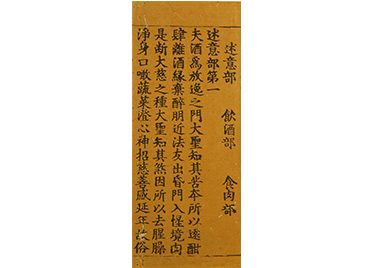 述意部 飲酒部 食肉部
述意部第一
夫酒為放逸之門大聖知其苦本所以遠酣
肆離酒緣棄醉朋近法友出昏門入惺境肉
是斷大慈之種大聖知其煞因所以去腥臊
淨身口噉蔬菜澄心神招慈善感延年故俗